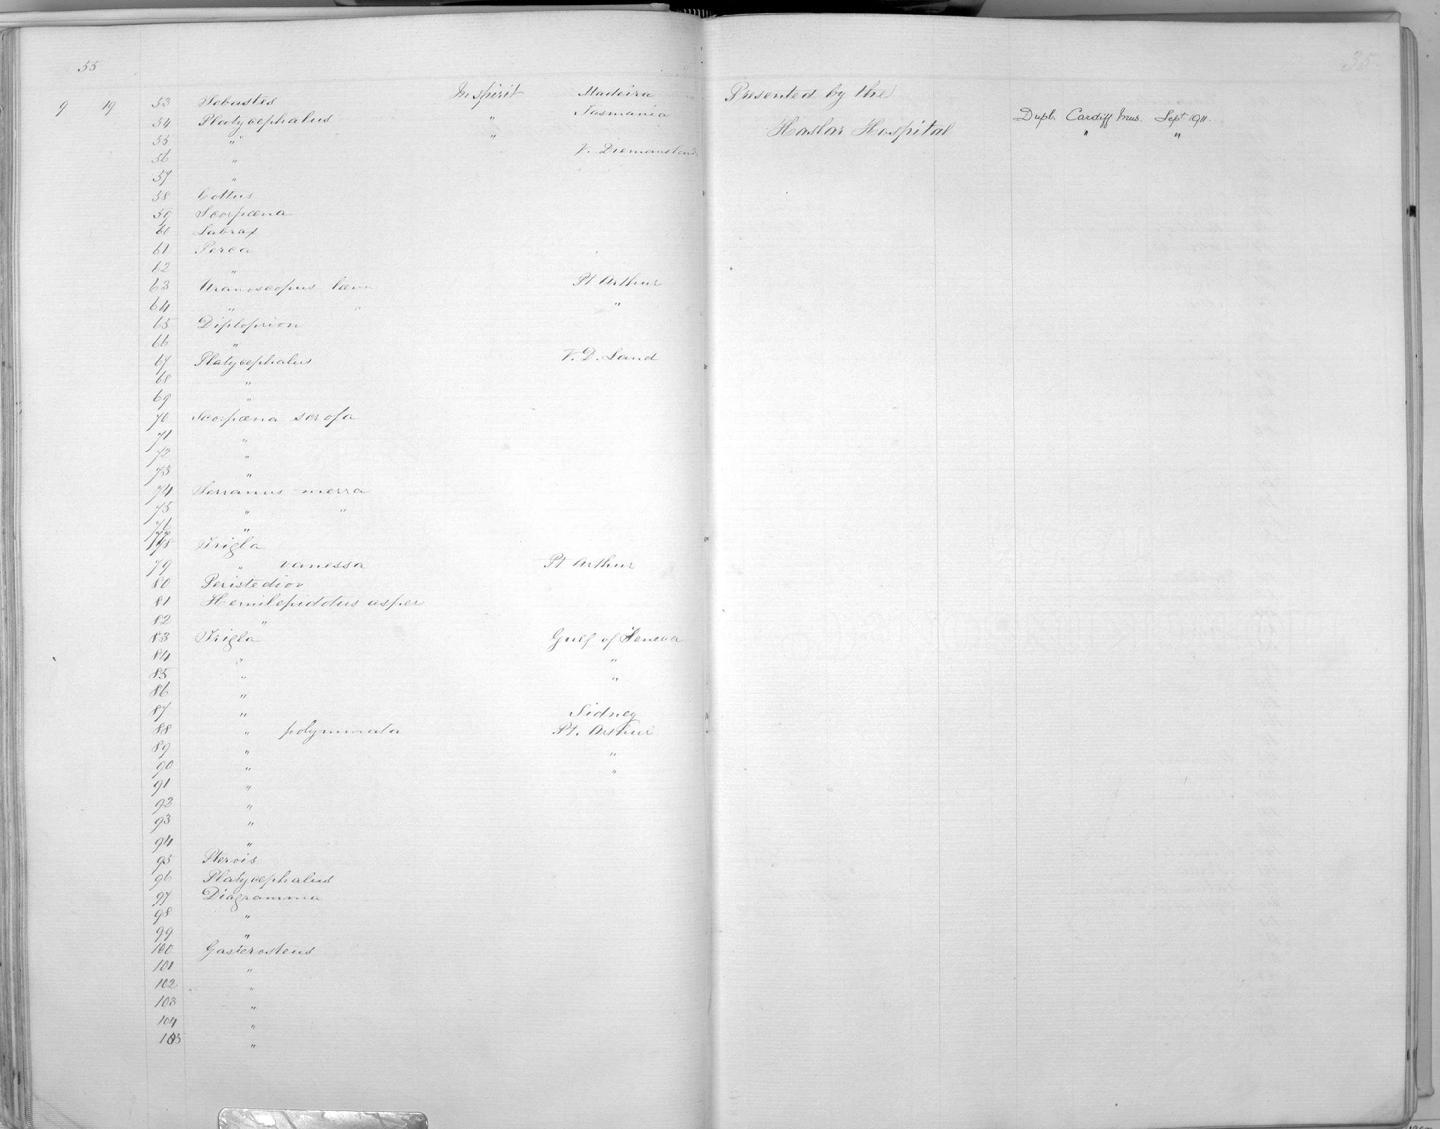 55
35
9 19 53 Sebastes In spirit Madeira Presented by the
54 Platycephalus " Tasmania Haslar Hospital Dupl. Cardiff Mus. Sept 1911.
55 " " " "
56 " V. Diemansland
57 "
58 Cottus
59 Scorpæna
60 Labrax
61 Perca
62 "
63 Uranoscopus lævis Pt Arthur
64 " " "
65 Diploprion
66 "
67 Platycephalus V. D. Land
68 "
69 "
70 Scorpæna scrofa
71 "
72 "
73 "
74 Serranus merra
75 " "
76 "
77
78 Trigla
79 " vanessa Pt Arthur
80 Peristedion
81 Hemilepidotus asper
82 "
83 Trigla Gulf of Geneva
84 " "
85 " "
86 "
87 " Sidney
88 " polyommata Pt. Arthur
89 " "
90 " "
91 "
92 "
93 "
94 "
95 Pterois
96 Platycephalus
97 Diagramma
98 "
99 "
100 Gasterosteus
101 "
102 "
103 "
104 "
105 "